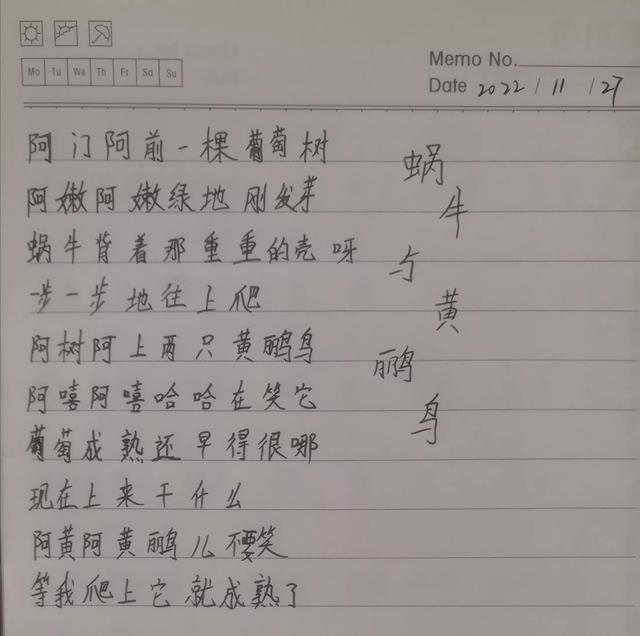 Memo No.
Mo Tu We Th Fr Sa Su
Date 2022/11/27
阿门阿前一棵葡萄树
阿嫩阿嫩绿地刚发芽
蜗牛背着那重重的壳呀
一步一步地往上爬
阿树阿上两只黄鹂鸟
阿嘻阿嘻哈哈在笑它
葡萄成熟还早得很哪
现在上来干什么
阿黄阿黄鹂儿不要笑
等我爬上它就成熟了
蜗牛与黄鹂鸟